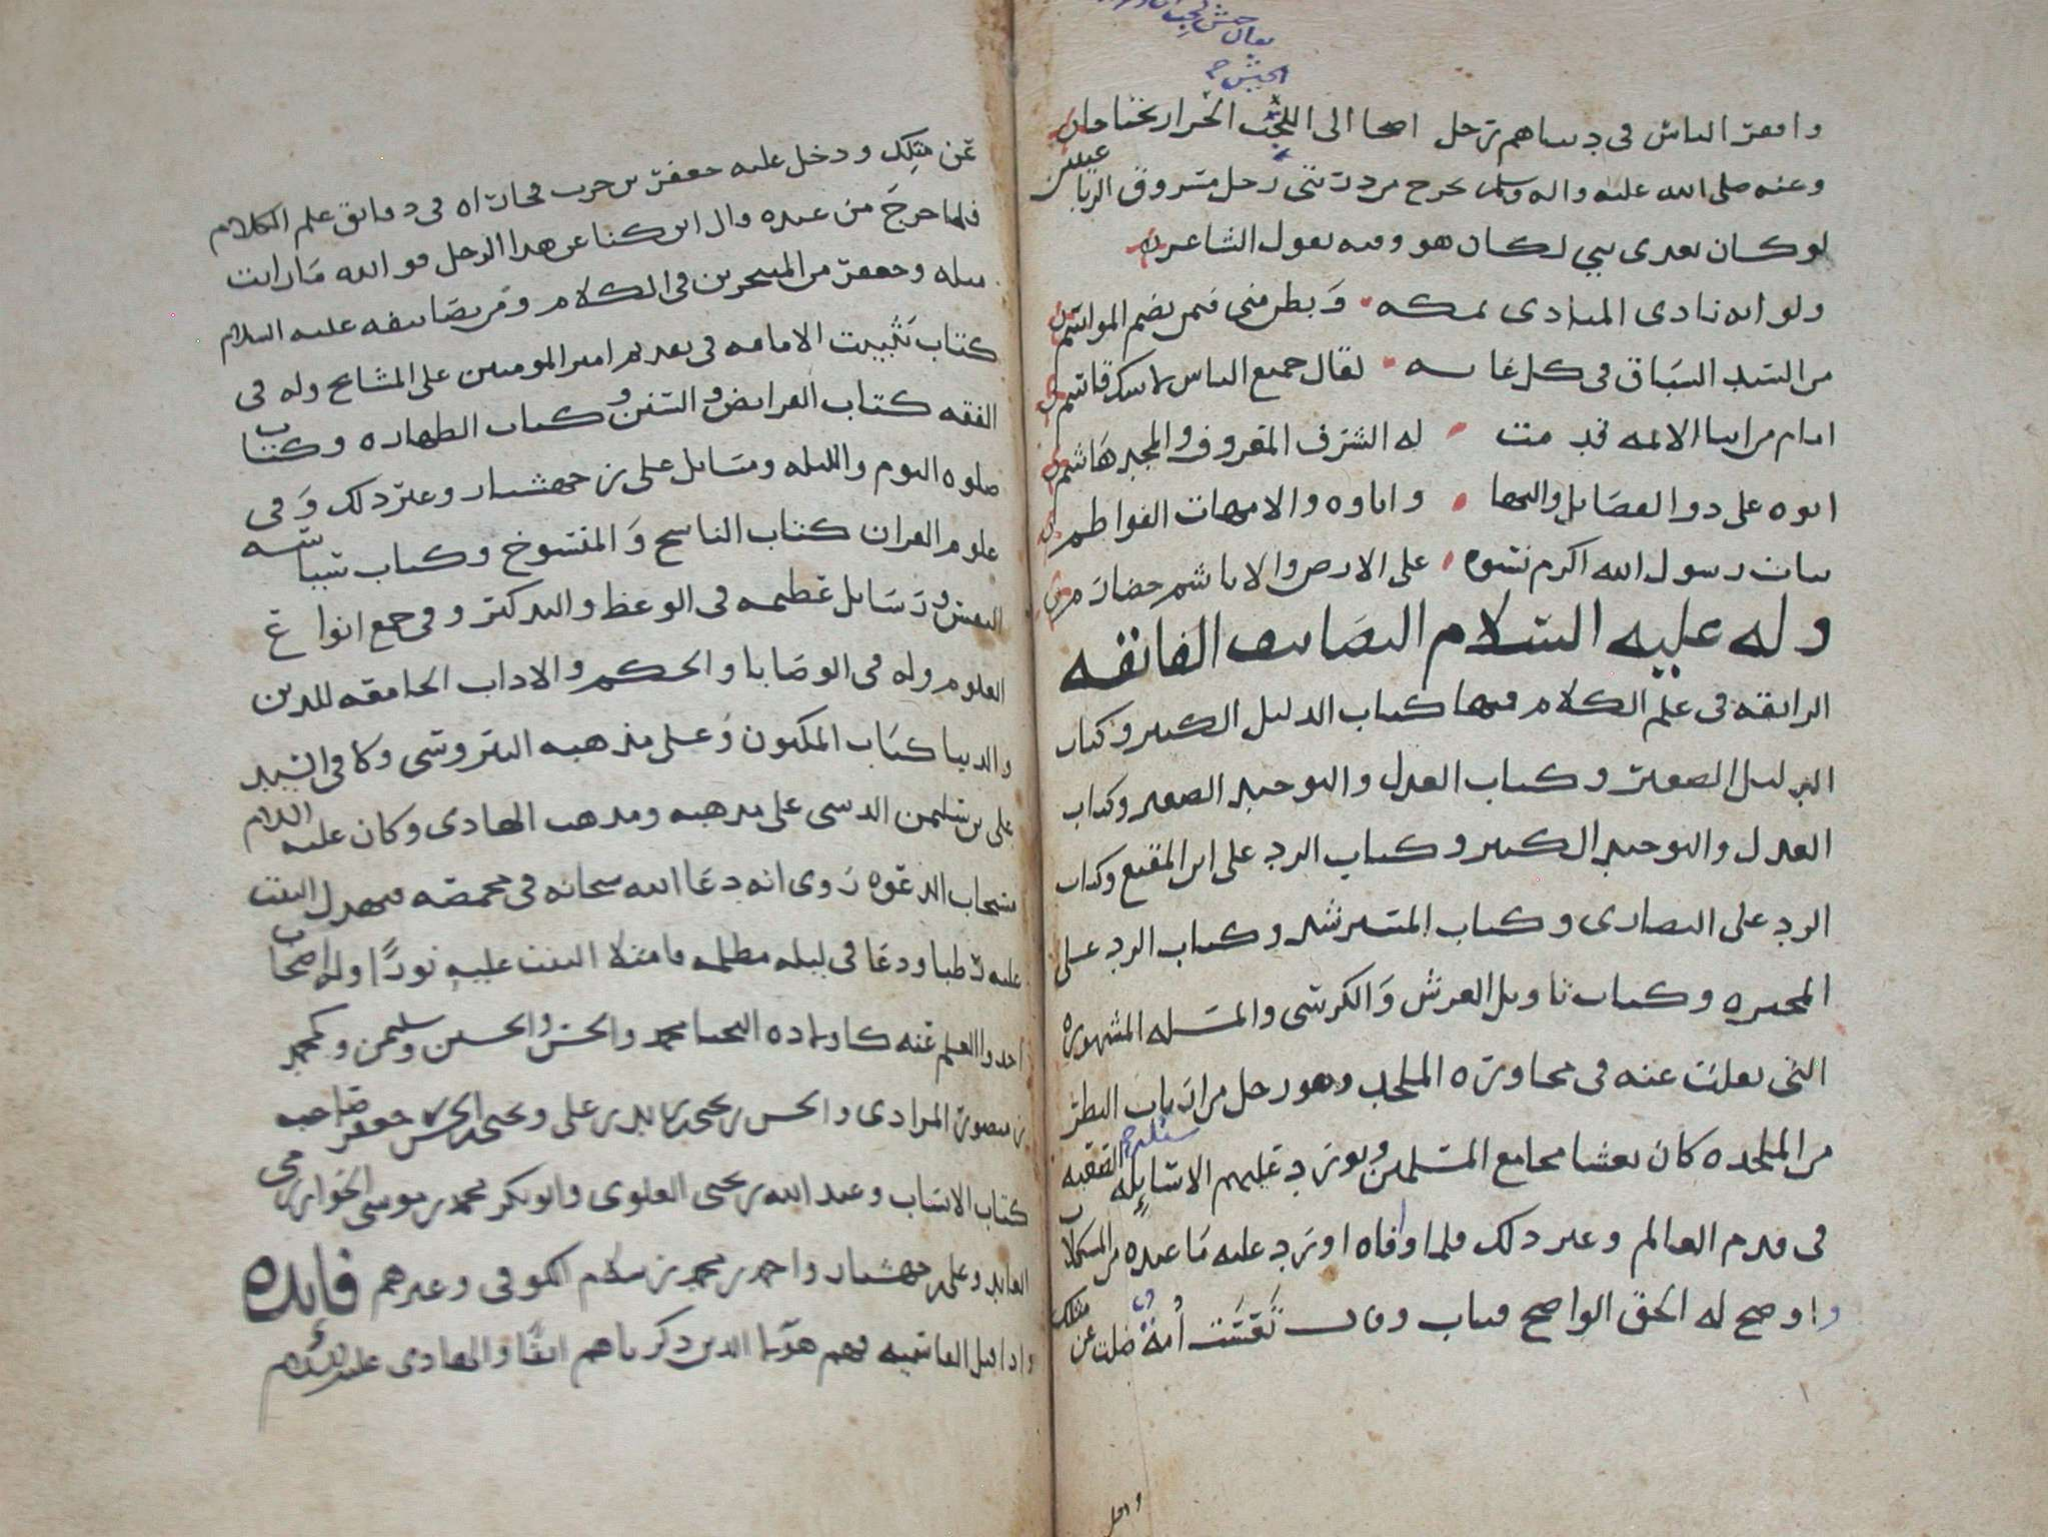 يقال جيش لجب
الجيش
وافعر الناس في دساهم ترحل اصحا الى اللجب الجرار يحتاحان
وعنه صلى الله عليه واله وسلم يخرج من ذريتي رجل مسروق الرباعيتين
لو كان بعدي نبي لكان هو وفيه يقول الشاعر
ولو انه نادى المنادي بمكة وبطن منى فيمن يضم المواسم
من السيد السباق في كل غاية لقال جميع الناس لا شك قاسم
امام من ابنا الائمة قدمت له الشرف المعروف والمجد هاشم
ابوه علي ذو الفضايل والنهى واباوه والامهات الفواطم
بنات رسول الله اكرم نسوة على الارض والابا شم خضارم
وله عليه السلام التصانيف الفائقه
الرائقه في علم الكلام منها كتاب الدليل الكبير وكتاب
الدليل الصغير وكتاب العدل والتوحيد الصغير وكتاب
العدل والتوحيد الكبير وكتاب الرد على ابن المقفع وكتاب
الرد على النصارى وكتاب المسترشد وكتاب الرد على
المجبره وكتاب تاويل العرش والكرسي والمسله المشهوره
التي نقلت عنه في محاورة الملحد وهو رجل من ارباب النظر
من الملحده كان يغشا مجامع المسلمين ويورد عليهم الاسايله الصعبه
في قدم العالم وغير ذلك فلما وافاه اورد عليه ما عنده من المشكلات
واوضح له الحق الواضح فتاب وقال تعست أمة ضلت عن مثلك
واحل
عن مثلك ودخل عليه جعفر بن حرب فجاراه في دقائق علم الكلام
فلما خرج من عنده قال اين كنا عن هذا الرجل فو الله ما رايت
مثله وجعفر من المتبحرين في الكلام ومن تصانيفه عليه السلام
كتاب تثبيت الامامه في تقديم امير المومنين على المشايخ وله في
الفقه كتاب الفرايض والسنن وكتاب الطهاره وكتاب
صلوه اليوم والليله ومسايل علي بن جهشيار وغير ذلك وفي
علوم القران كتاب الناسخ والمنسوخ وكتاب سياسة
النفس ورسايل عظيمه في الوعظ والتذكير وفي جمع انواع
العلوم وله في الوصايا والحكم والاداب الجامعه للدين
والدنيا كتاب المكنون وعلى مذهبه النيروسي وكافي السيد
علي بن سليمن الدسي على مذهبه ومذهب الهادي وكان عليه السلام
مستجاب الدعوه روي انه دعا الله سبحانه في مخمصه فتهدل البيت
عليه رطبا ودعا في ليله مظلمه فامتلا البيت عليه نورا وله اصحاب
اخذوا العلم عنه كاولاده النجبا محمد والحسن والحسين وسليمن وكمحمد
بن منصور المرادي والحسن بن يحيى بن زيد بن علي ويحيى بن الحسن بن جعفر صاحب
كتاب الانساب وعبد الله بن يحيى العلوي وابو بكر محمد بن موسى الخوارزمي
العابد وعلي بن جهشيار واحمد بن محمد بن سلام الكوفي وغيرهم فايده
واذا قيل القاسميه فهم هؤلا الذين ذكرناهم انفا والهادي عليه السلام